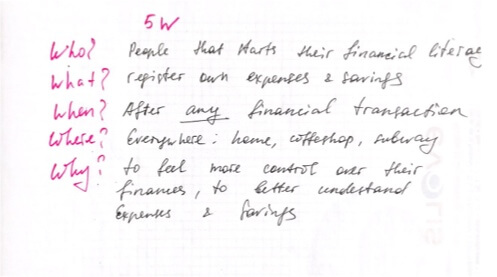 5 W
Who? People that starts their financial literacy
What? register own expenses & savings
When? After any financial transaction
Where? Everywhere: home, coffeshop, subway
Why? to feel more control over their
finances, to better understand
Expenses & Savings